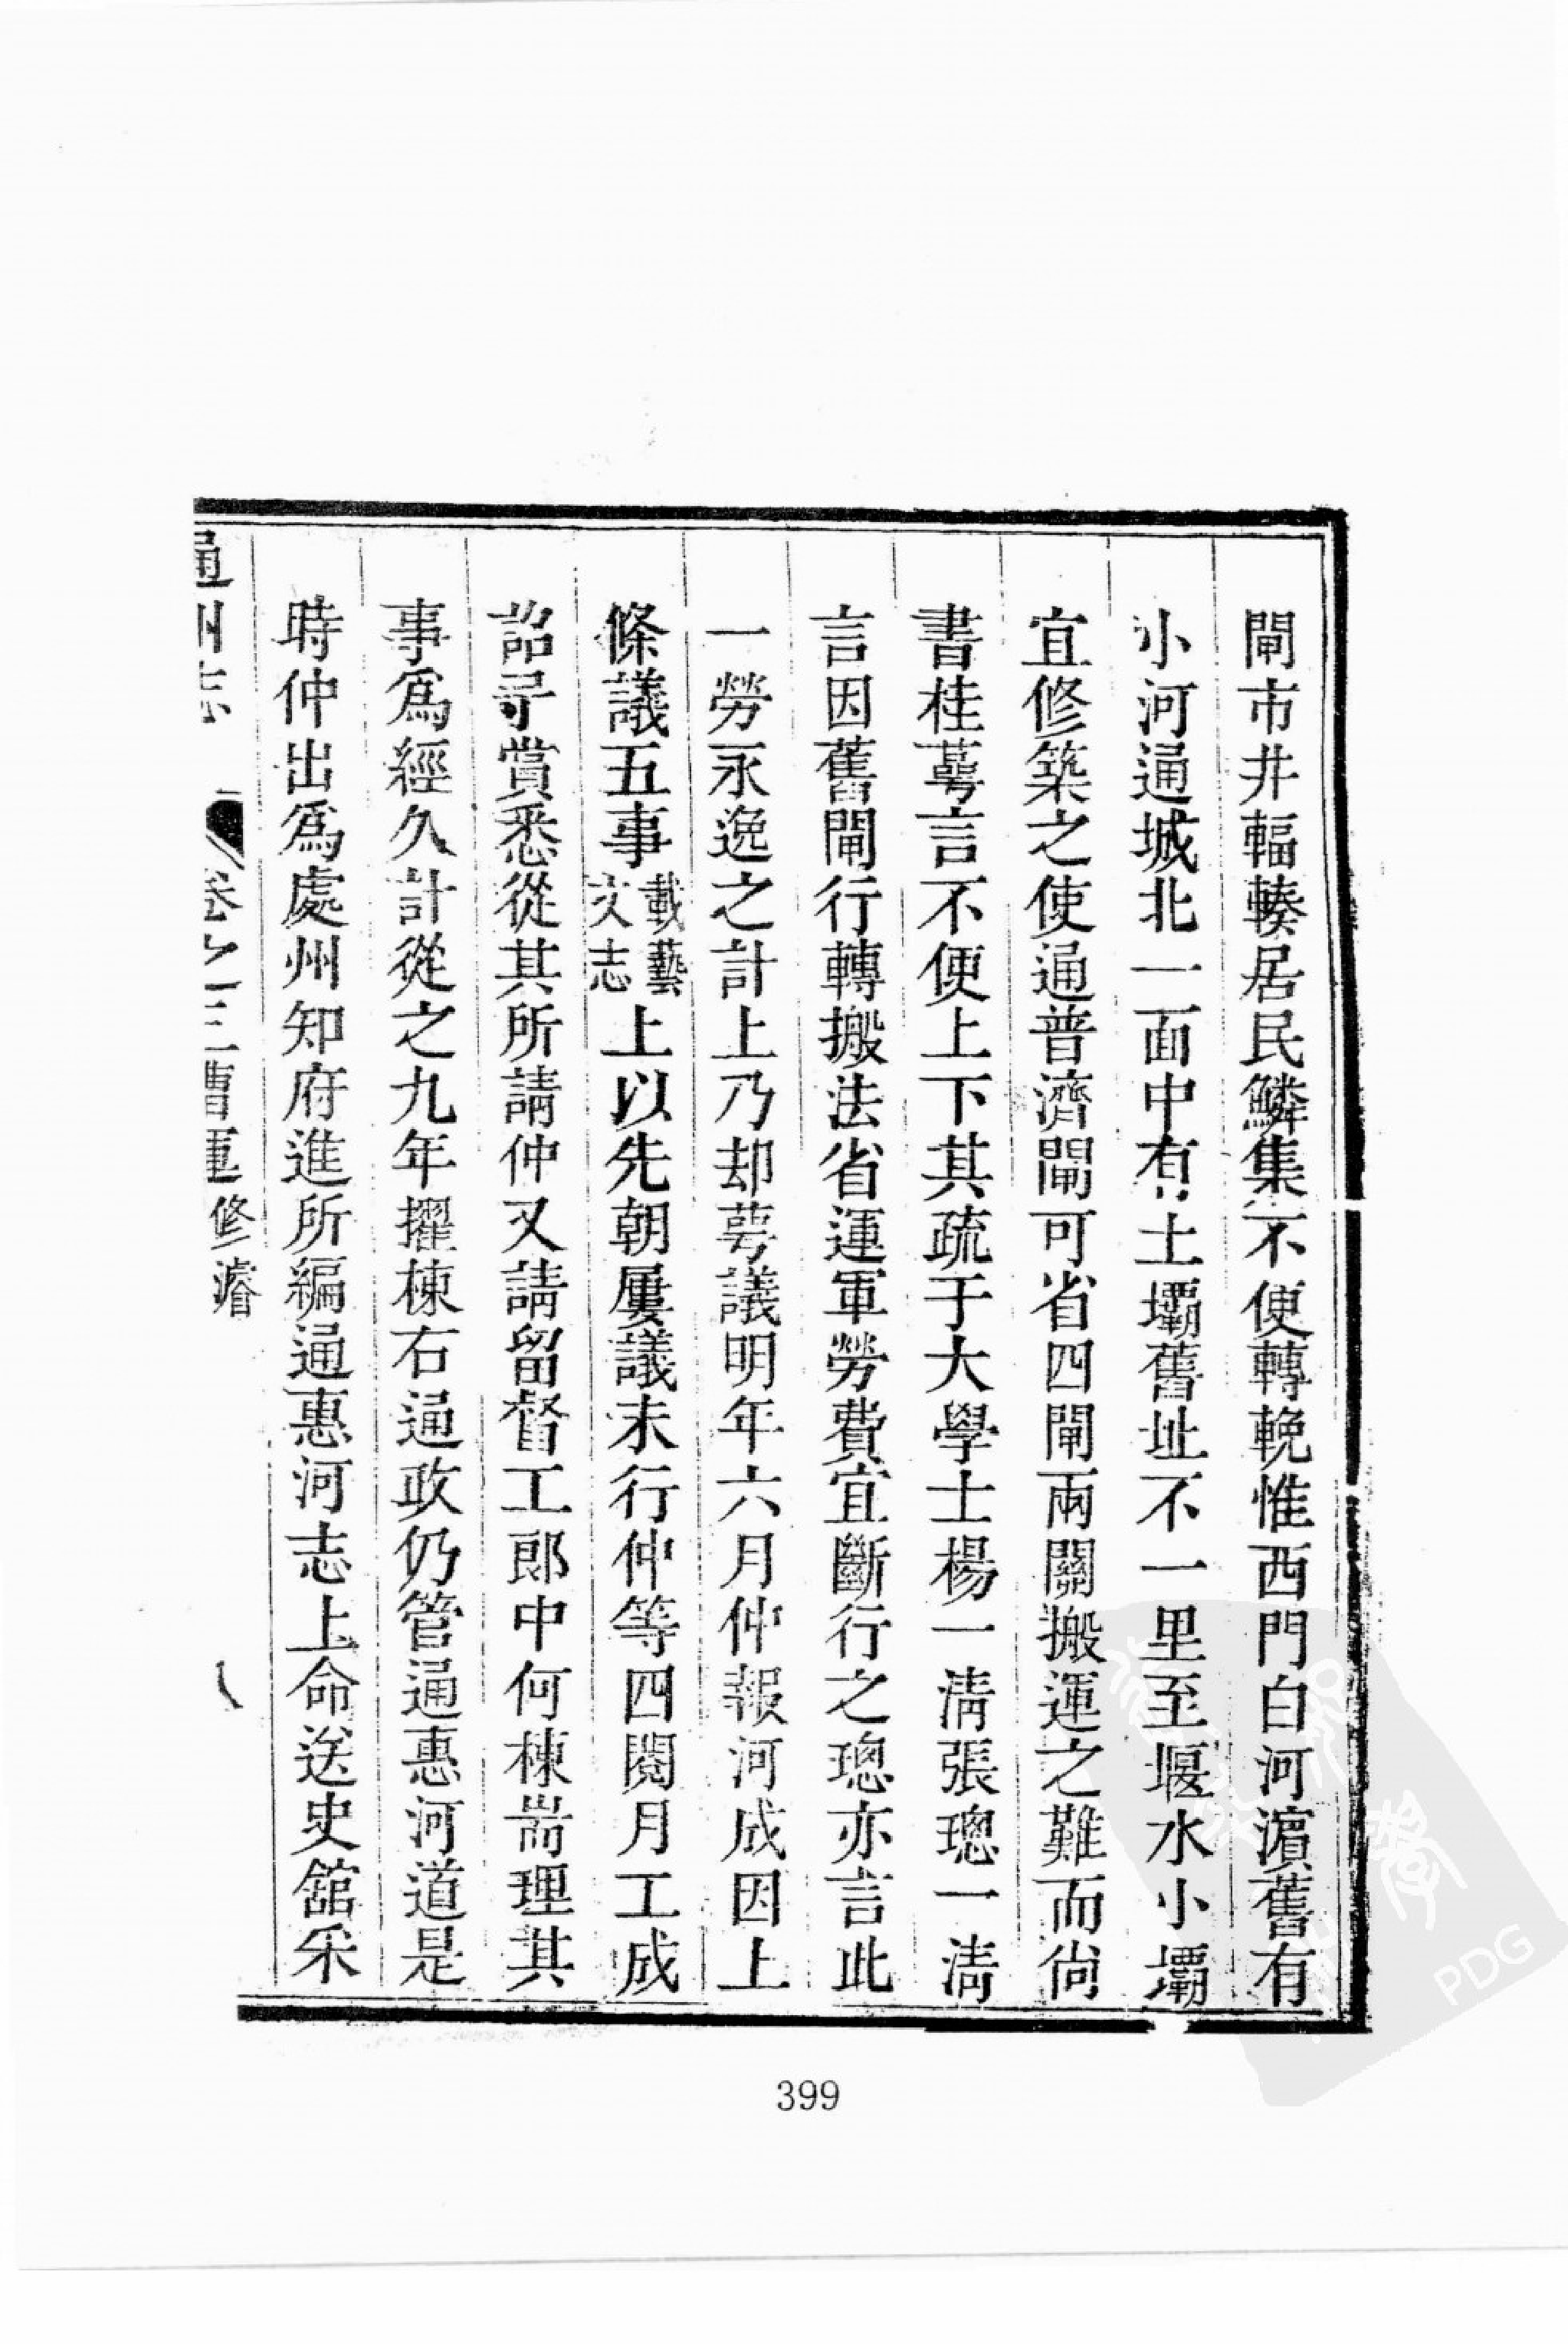 閘市井輻輳居民鱗集不便轉輓惟西門白河濵舊有
小河通城北一面中有土壩舊址不一里至堰水小壩
宜修築之使通普濟閘可省四閘兩關搬運之難而尙
書桂萼言不便上下其疏于大學士楊一淸張璁一淸
言因舊閘行轉搬法省運軍勞費宜斷行之璁亦言此
一勞永逸之計上乃却萼議明年六月仲報河成因上
條議五事載藝文志上以先朝屢議未行仲等四閱月工成
詔予賞悉從其所請仲又請留督工郎中何棟耑理其
事爲經久計從之九年擢棟右通政仍管通惠河道是
時仲出爲處州知府進所編通惠河志上命送史舘采
通州志 卷之三漕運修濬 八
399
PDG